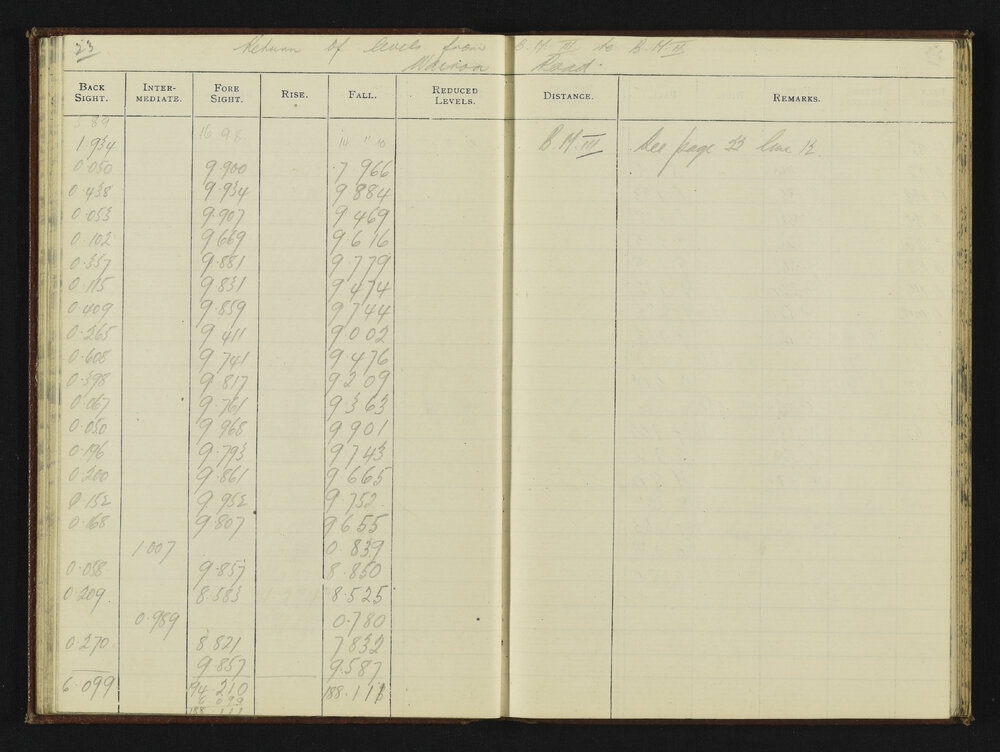 23 Return of levels from B.M III to B.M II
Wairoa Road.
BACK SIGHT. INTER-MEDIATE. FORE SIGHT. RISE. FALL. REDUCED LEVELS. DISTANCE. REMARKS.
1.934 B.M III See page 23 line 12
0.050 9.900 .7 966
0.438 9.934 9 884
0.053 9.907 9 469
0.102 9 669 9.616
0.357 9.881 9.779
0.115 9 831 9.474
0.409 9.859 9.744
0.265 9 411 9.002
0.608 9 741 9.476
0.398 9.817 9.209
0.067 9.761 9.363
0.050 9 968 9 901
0.196 9.793 9743
0.200 9.861 9.665
0.152 9.952 9 752.
0.168 9.807 9655
1.007 0.839
0.058 9.857 8.850
0.209 8.583 8.525
0.989 0.780
0.270 8 821 7832
9.857 9.587
6.099 194.210 188.111
6 099
188 111